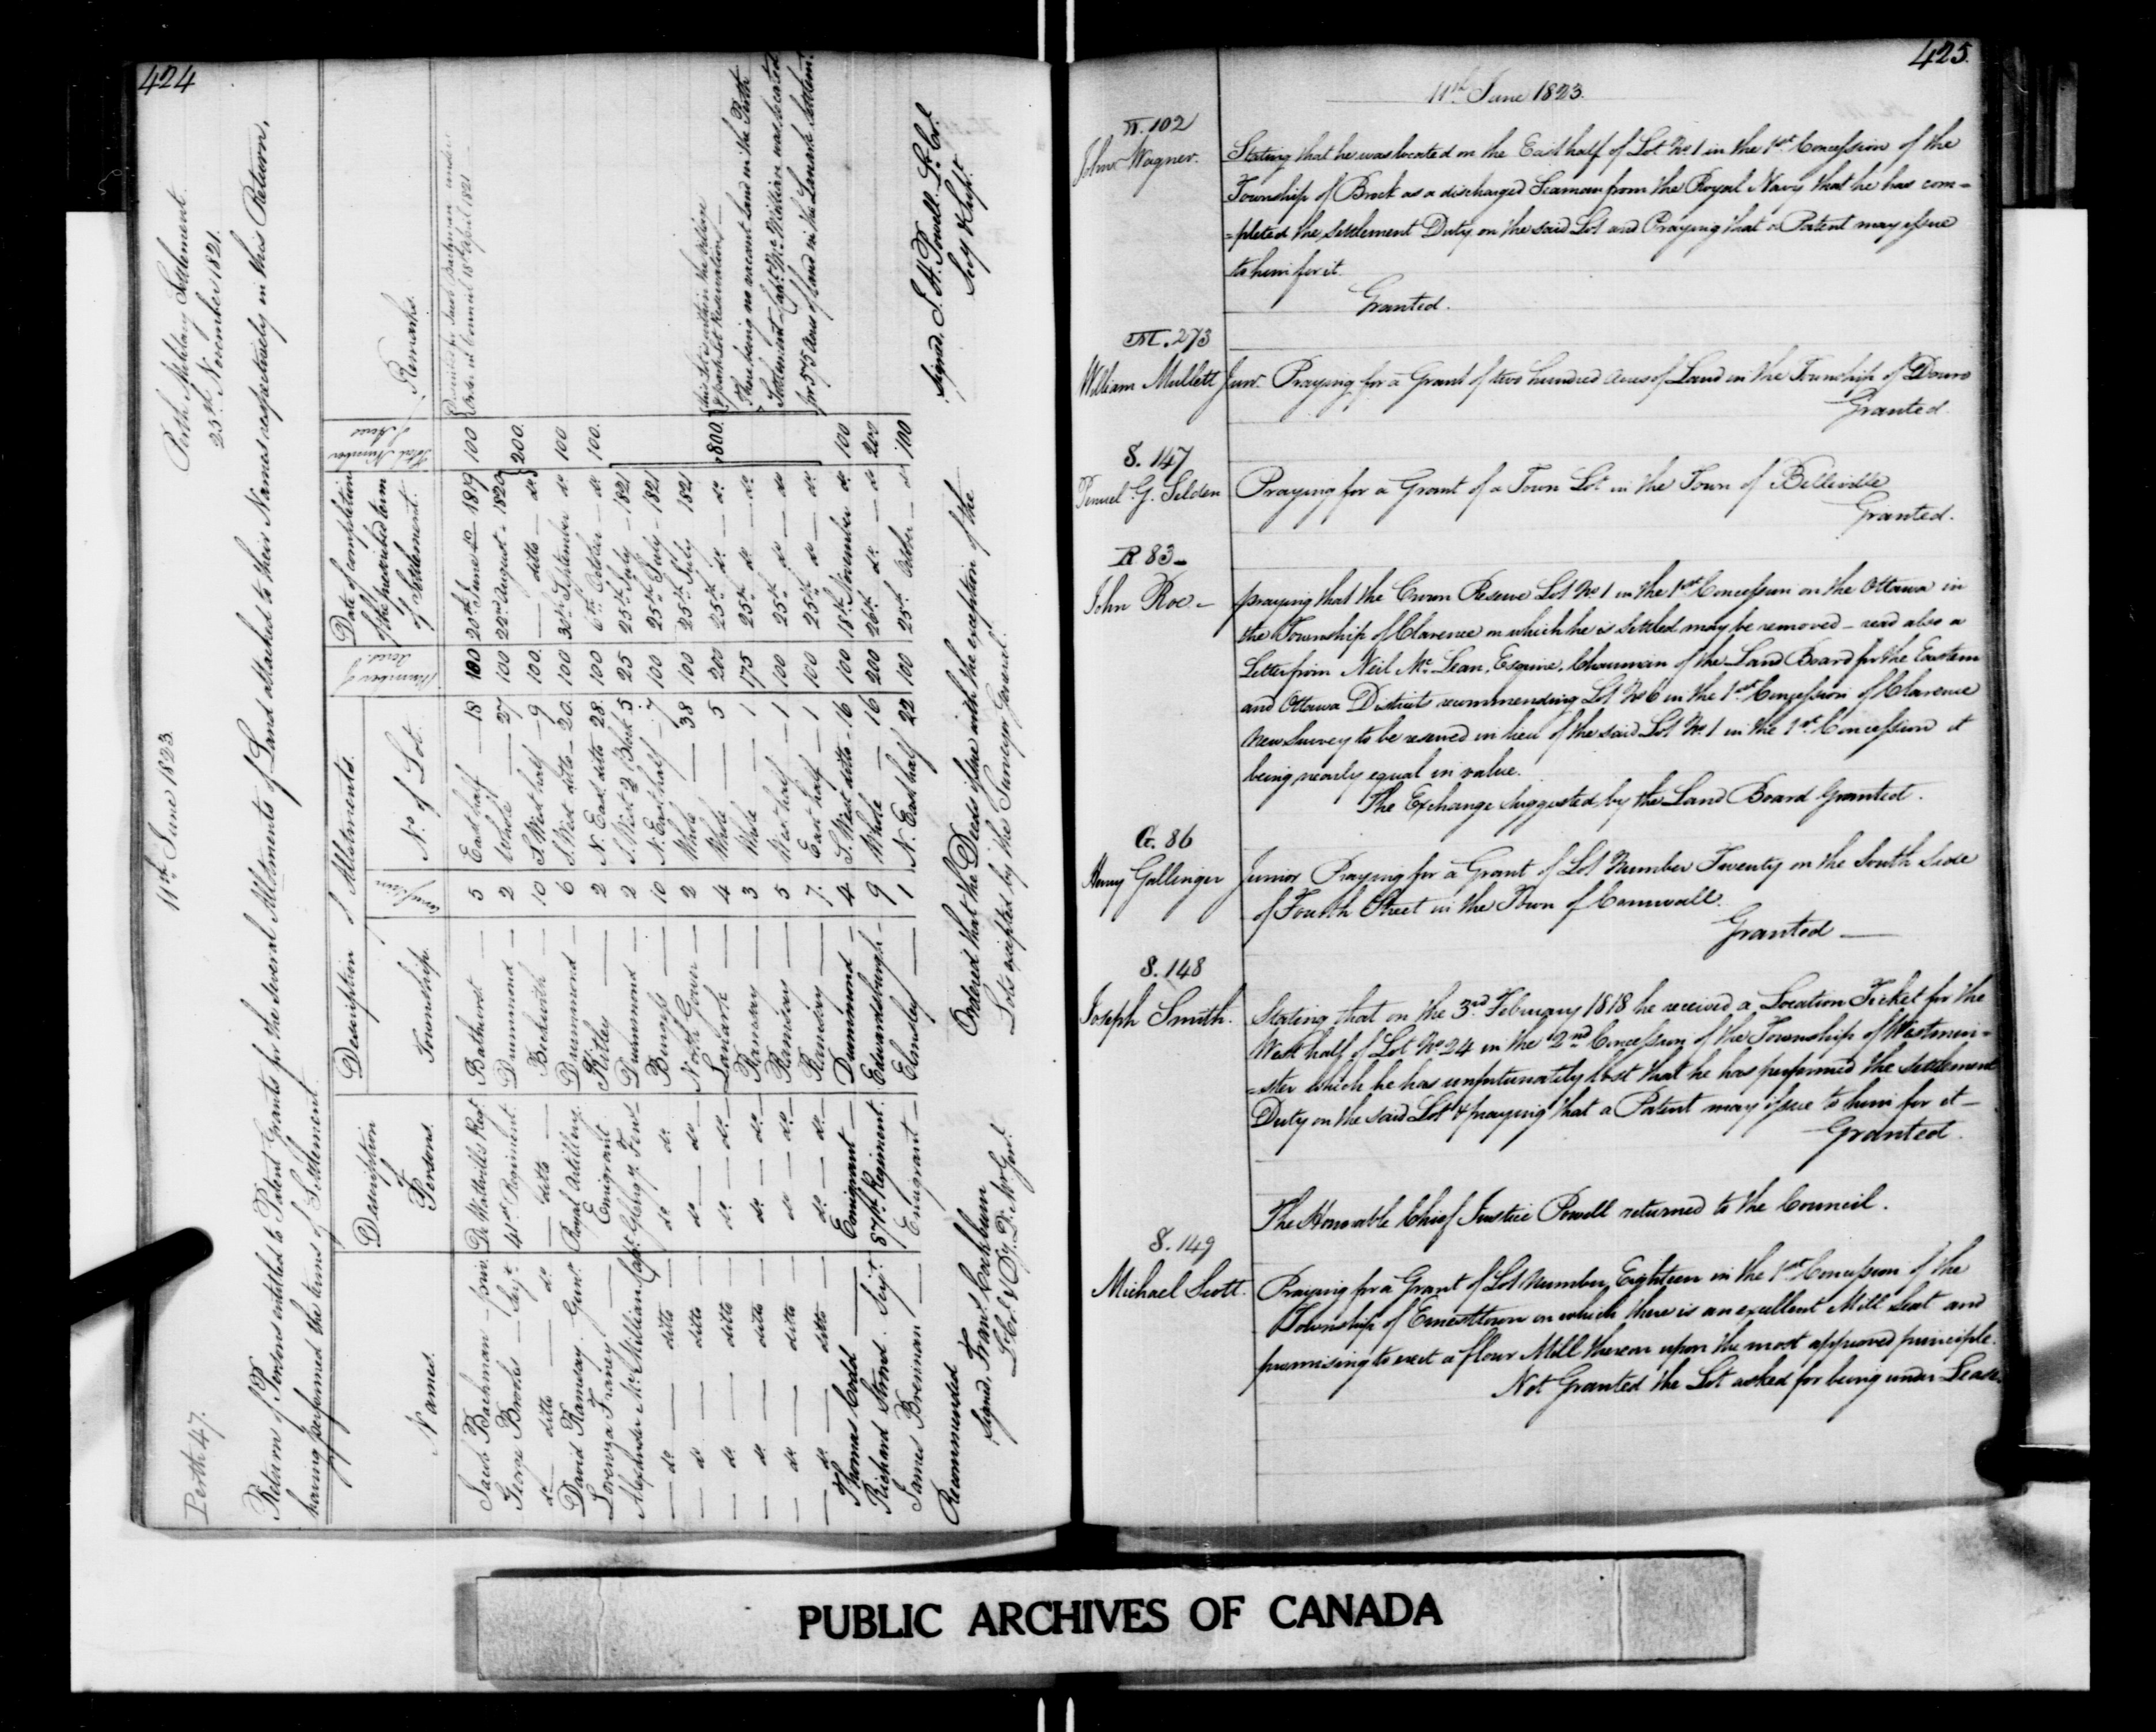 424
11th June 1823.
Perth 47.
Perth Military Settlement
25th November 1821.
Return of Persons entitled to Patent Grants for the several Allotments of Land attached to their Names respectively in this Return,
having performed the terms of Settlement
Names. Description of Persons. Description of Allotments. Township. Concession N. of Lot. Number of Acres Date of completion of the prescribed term of Settlement. Total Number of Acres Remarks.
Jacob Bachman – priv. De Watteville's Regt. Bathurst — 5 East half — 18 100 20th June 1819 100
George Brooks — Sejt. 41st Regiment. Drummond — 2 Whole — 27 100 22nd August - 1820 200.
do. ditto — do. — ditto — Beckwith — 10 S. West half – 9 100. — ditto — do.
David Ramsay. Gunr. Royal Artillery. Drummond — 6 S. West ditto – 20. 100 30th September do 100
Lorenza Franey — Emigrant Kitley — 2 N. East ditto 28. 100 6th October — do. 100.
Alexander McMillian Capt. Glengy. Fens Drummond — 2 S. West 5 25 25th July – 1821
— do. — ditto — do do. Burgess — 10 N. East half — 7 100 25th July – 1821
— do — ditto — do — do — North Gower — 2 Whole — 38 100 25th July 1821
— do. — ditto — do. — do. — Lanark — 4 Whole — 5 200 25th do. — do. 800.
— do. — ditto — do. — do. — Ramsay — 3 Whole — 1 175 25th do — do.
— do. — ditto — do — do. — Ramsay — 5 West half — 1 100 25th do — do
— do. — ditto — do. — do. Ramsay — 7. East half — 1 100 25th do — do.
Thomas Code — Emigrant — Drummond — 4 S. West ditto - 16 100 18th November do. 100
Richard Strond. Sejt. 87th Regiment. Edwardsburgh — 9 Whole — 16 200 26th do. — do 200
James Brennan — Emigrant — Elmsley — 1 N. East half 22 100 25th October — do 100
This Lot is within the village
& park Lot Reservation —
There being no vacant Land in the Perth
Settlement Capt. McMillian was located
for 575 Acres of Land in the Lanark Settlemt.
Recommended
Signed, Frans. Cockburn
Lt. Col. & Dy. Qr. Mr. Genl.
Ordered that the Deeds issue with the exception of the
Lots excepted by the Surveyor General.
Signed. J. H. Powell. Lt. Col.
Secy & Supt.
425.
11th June 1823.
W. 102
John Wagner. Stating that he was located on the East half of Lot No 1 in the 1st Concession of the
Township of Brock as a discharged Seaman from the Royal Navy that he has com=
=pleted the settlement Duty on the said Lot and Praying that a Patent may issue
to him for it.
Granted.
M. 273
William Mullett Junr. Praying for a Grant of two hundred acres of Land in the Township of Douro
Granted.
S. 147
Pemuel G. Selden Praying for a Grant of a Town Lot in the Town of Belleville
Granted.
R 83 –
John Roe – praying that the Crown Reserve Lot No 1 in the 1st Concession on the Ottawa in
the Township of Clarence on which he is settled may be removed – read also a
Letter from Neil McLean, Esquire, Chairman of the Land Board for the Eastern
and Ottawa Districts recommending Lot No 6 in the 1st Concession of Clarence
New Survey to be reserved in lieu of the said Lot No. 1 in the 1st Concession it
being nearly equal in value.
The Exchange suggested by the Land Board Granted.
G. 86
Henry Gallinger Junior Praying for a Grant of Lot Number Twenty on the South side
of Fourth Street in the Town of Cornwall.
Granted —
S. 148
Joseph Smith. Stating that on the 3rd February 1818 he received a Location Ticket for the
West half of Lot No 24 in the 2nd Concession of the Township of Westmin=
=ster which he has unfortunately lost that he has performed the settlement
Duty on the said Lot & praying that a Patent may issue to him for it –
Granted.
The Honorable Chief Justice Powell returned to the Council.
S. 149
Michael Scott. Praying for a Grant of Lot Number, Eighteen in the 1st Concession of the
Township of Ernesttown on which there is an excellent Mill Seat and
promising to erect a flour Mill thereon upon the most approved principle.
Not Granted the Lot asked for being under Lease.
PUBLIC ARCHIVES OF CANADA